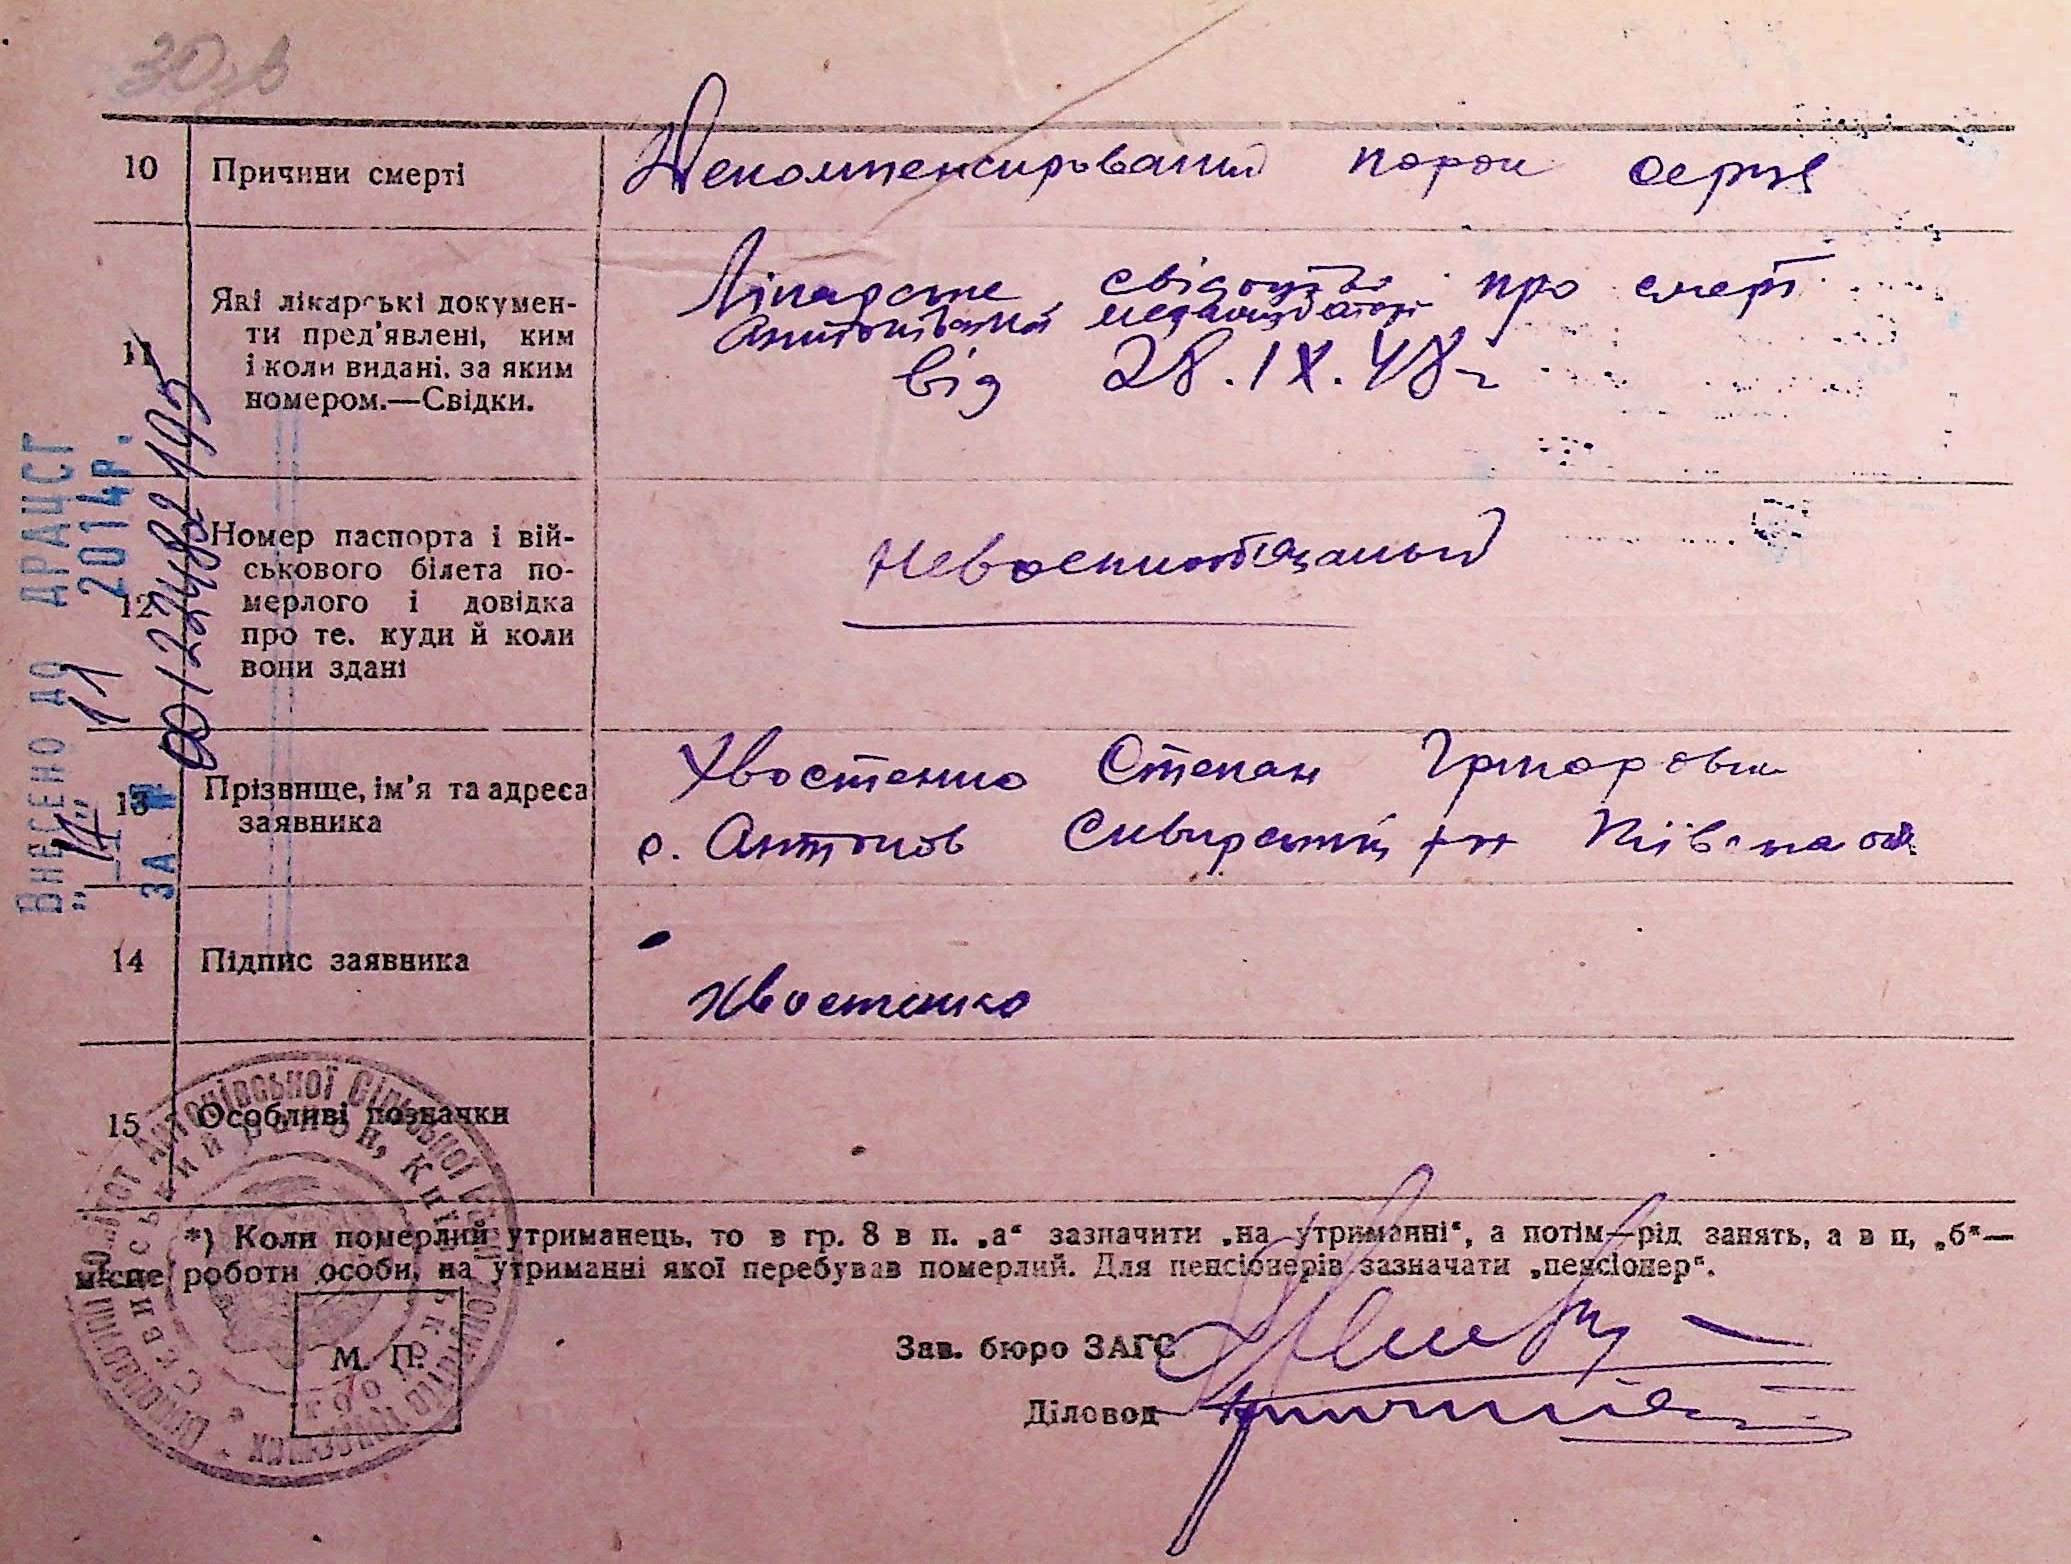 10 Причини смерті
Декомпенсированый порок серця
11 Які лікарські докумен-
ти пред'явлені, ким
і коли видані, за яким
номером.—Свідки.
Лікарське свідоцтво про смерт
Антонівської
від 28.IX.48 г
12 Номер паспорта і вій-
ськового білета по-
мерлого і довідка
про те. куди й коли
вони здані
Невоеннообязаный
13 Прізвище, ім'я та адреса
заявника
Хвостенко Степан Григорович
с. Антонов Сквирський р-н Київська обл.
14 Підпис заявника
Хвостенко
15 Особливі позначки
*) Коли померлий утриманець, то в гр. 8 в п. „а“ зазначити „на утриманні“, а потім—рід занять, а в п, „б“—
місце роботи особи, на утриманні якої перебував померлий. Для пенсіонерів зазначати „пенсіонер“.
М. П.
Зав. бюро ЗАГС
Діловод
Внесено до ДРАЦСГ
„11“ 11 2014р.
за № 00122488219
Виконавчий комітет Антонівської Сільської Ради депутатів трудящих
Сквирський район, Київської обл.